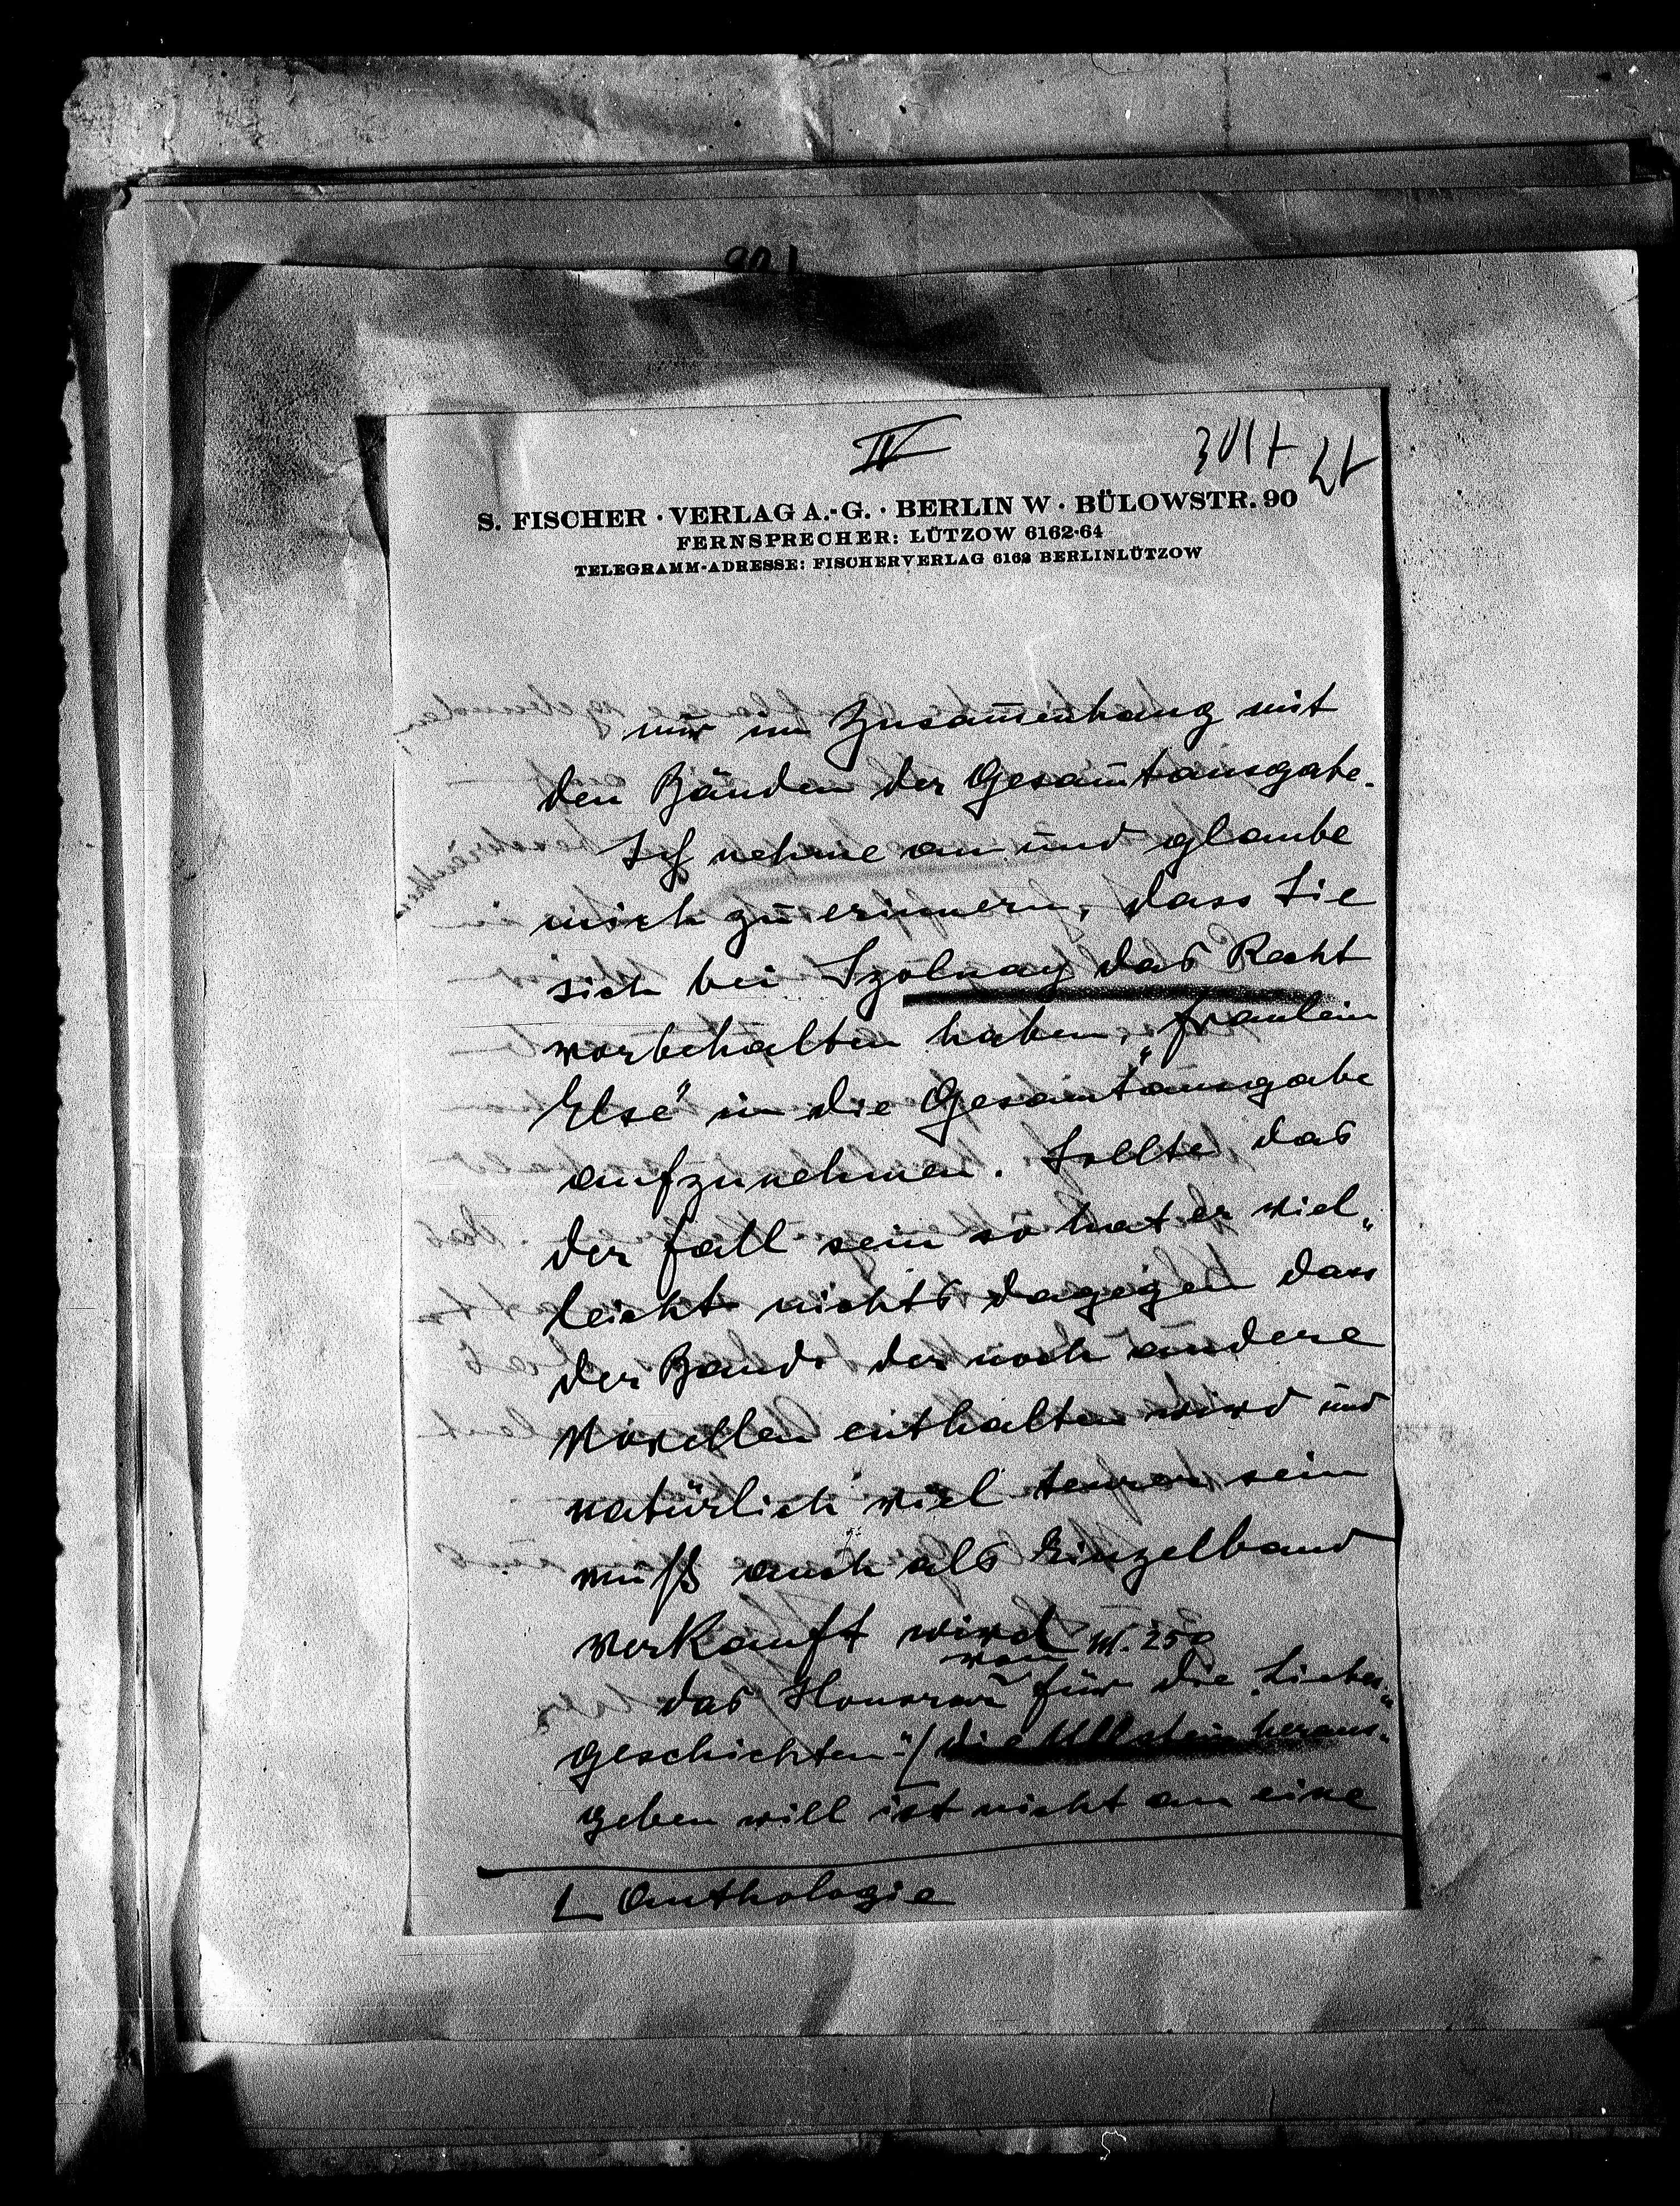 IV
S. FISCHER · VERLAG A.-G. · BERLIN W · BÜLOWSTR. 90
FERNSPRECHER: LÜTZOW 6162-64
TELEGRAMM-ADRESSE: FISCHERVERLAG 6162 BERLINLÜTZOW
nur im Zusam̄enhang mit
den Bänden der Gesam̄tausgabe.
Ich nehme an und glaube
mich zu erinnern, dass Sie
sich bei Szolnay das Recht
vorbehalten haben, „Fräulein
Else" in die Gesamtausgabe
aufzunehmen. Sollte das
der Fall sein so hat er viel„
leicht nichts dagegen dass
der Band der noch andere
Novellen enthalten wird und
natürlich viel teurer sein
muß auch als Einzelband
verkauft wird
von M. 250
das Honorar für die „Liebes„
geschichten" / die Ullstein heraus„
geben will ist nicht an eine
Anthologie